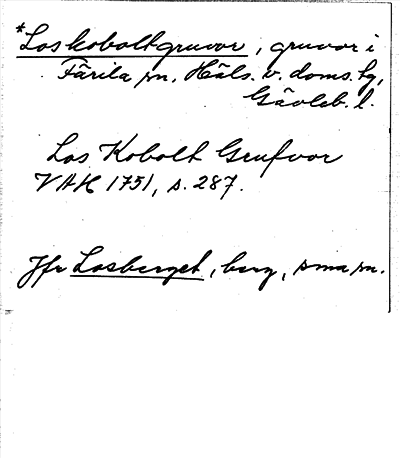 *Loskoboltgruvor, gruvor i
Färila sn, Häls. v. doms. tg,
Gävleb. l.
Los Kobolt Grufvor
VAH 1751, s. 287.
Jfr Losberget, berg, sma sn.